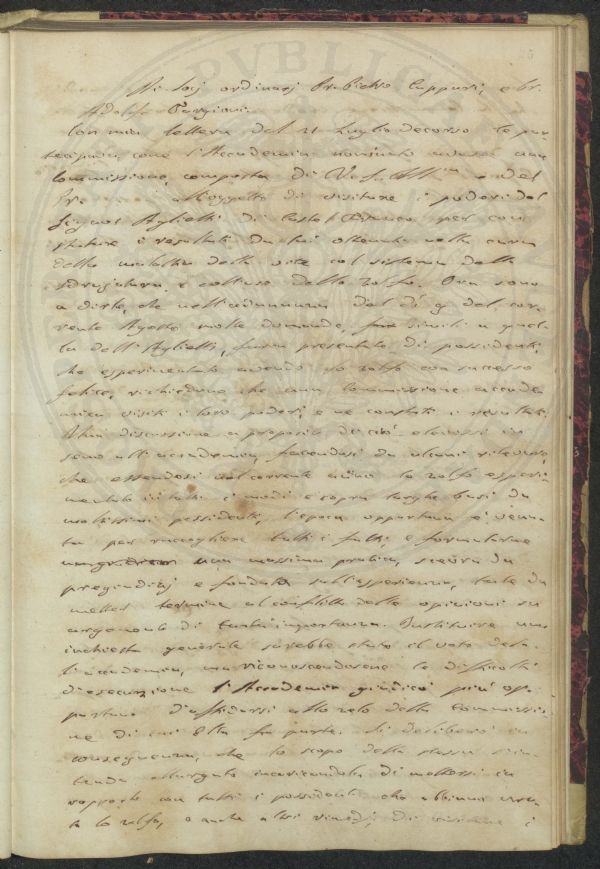 Ai Socj ordinarj Prof Pietro Cuppari, e Dr.
Adolfo Targioni.
Con mia lettera del 21 Luglio decorso le par-
tecipai, come l'Accademia nominato avesse una
Commissione, composta di V. S. Ill.ma e del
all'oggetto di visitare i poderi del
Signor Aglietti di Castel Franco per con
statare i resultati da lui ottenuti nella cura
della malattia della vite col sistema della
e coll'uso dello zolfo. Ora sono
a dirle, che nell'adunanza del dì 9 del cor-
rente Agosto molte domande, simili a quel-
la dell'Aglietti, furon presentate di possidenti,
che esperimentato avendo lo zolfo con successo
felice, richiedono che una Commissione accade-
mica visiti i loro poderi, e ne constati i resultati.
Una discussione a proposito di ciò elevossi in
seno all'accademia, facendosi da alcuni rilevare,
che essendosi nel corrente anno lo zolfo esperi-
mentato in tutti i modi e sopra larghe basi da
moltissimi possidenti, l'epoca opportuna è venu-
ta per raccogliere tutti i fatti e formularne
una massima pratica, scevra da
pregiudizj e fondata sull'esperienza, tale da
metter termine al conflitto delle opinioni su
argomento di tanta importanza. Instituire una
inchiesta generale sarebbe stato il voto del-
l'accademia, ma riconoscendosene le difficoltà
di esecuzione l'Accademia giudicò più op-
portuno d'affidarsi allo zelo della Commissio-
ne di cui Ella fa parte. Si deliberò in
conseguenza, che lo scopo della stessa s'in-
tenda allargato incaricandola di mettersi in
rapporto con tutti i possidenti che abbiano usa-
to lo zolfo, o anche altri rimedj, di visitarne i